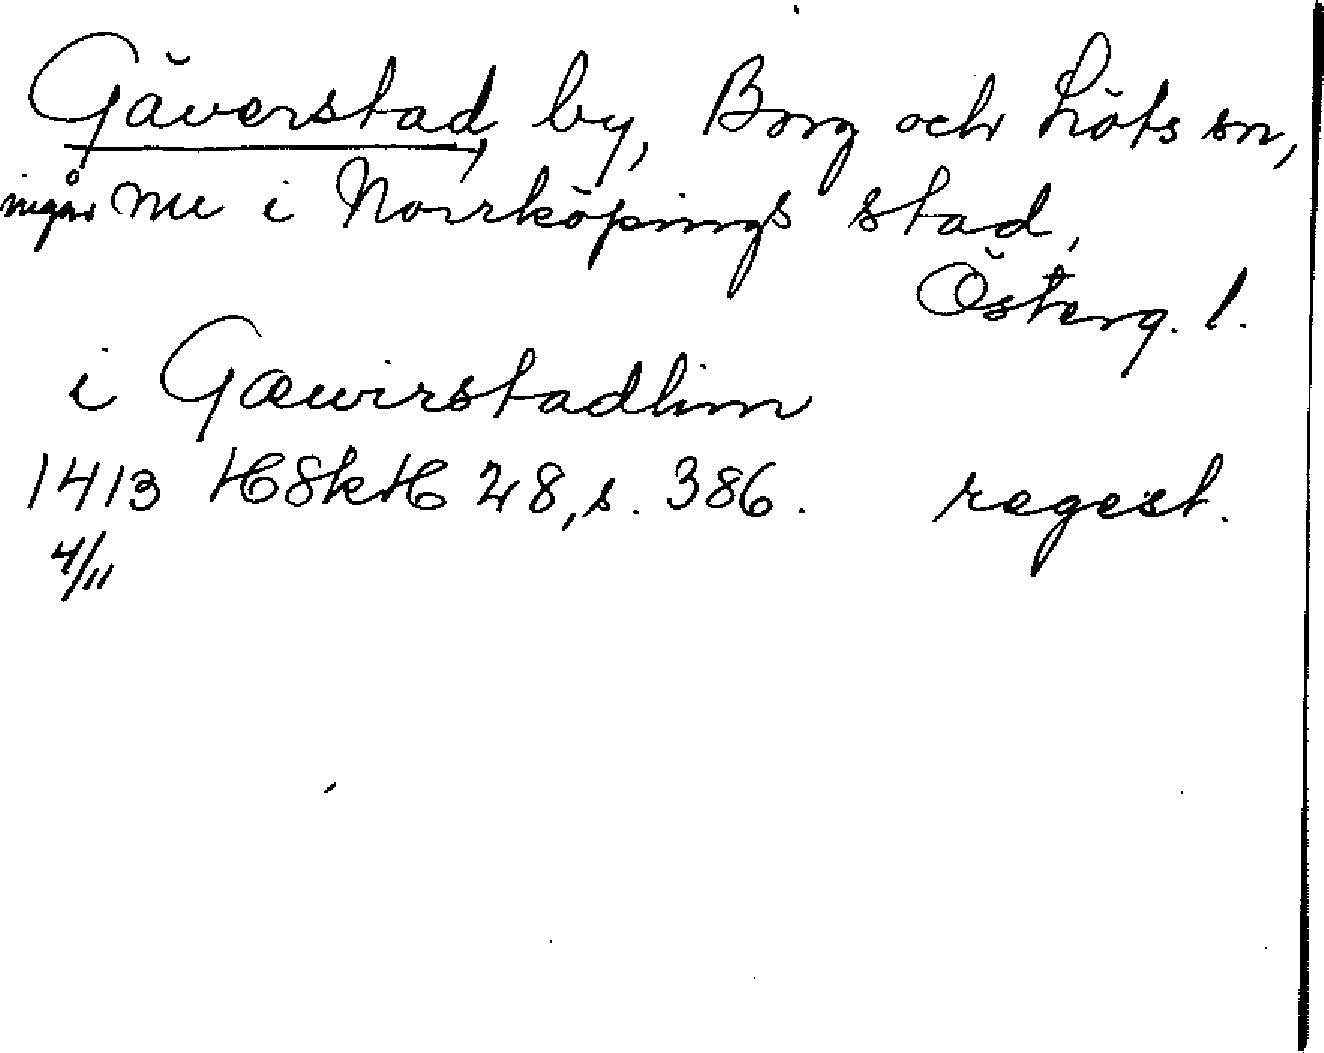 Gäverstad, by, Borg och Löts sn,
ingår nu i Norrköpings stad,
Österg. l.
i Gæwirstadhim
1413 HSkH 28, s. 386. regest.
4/11